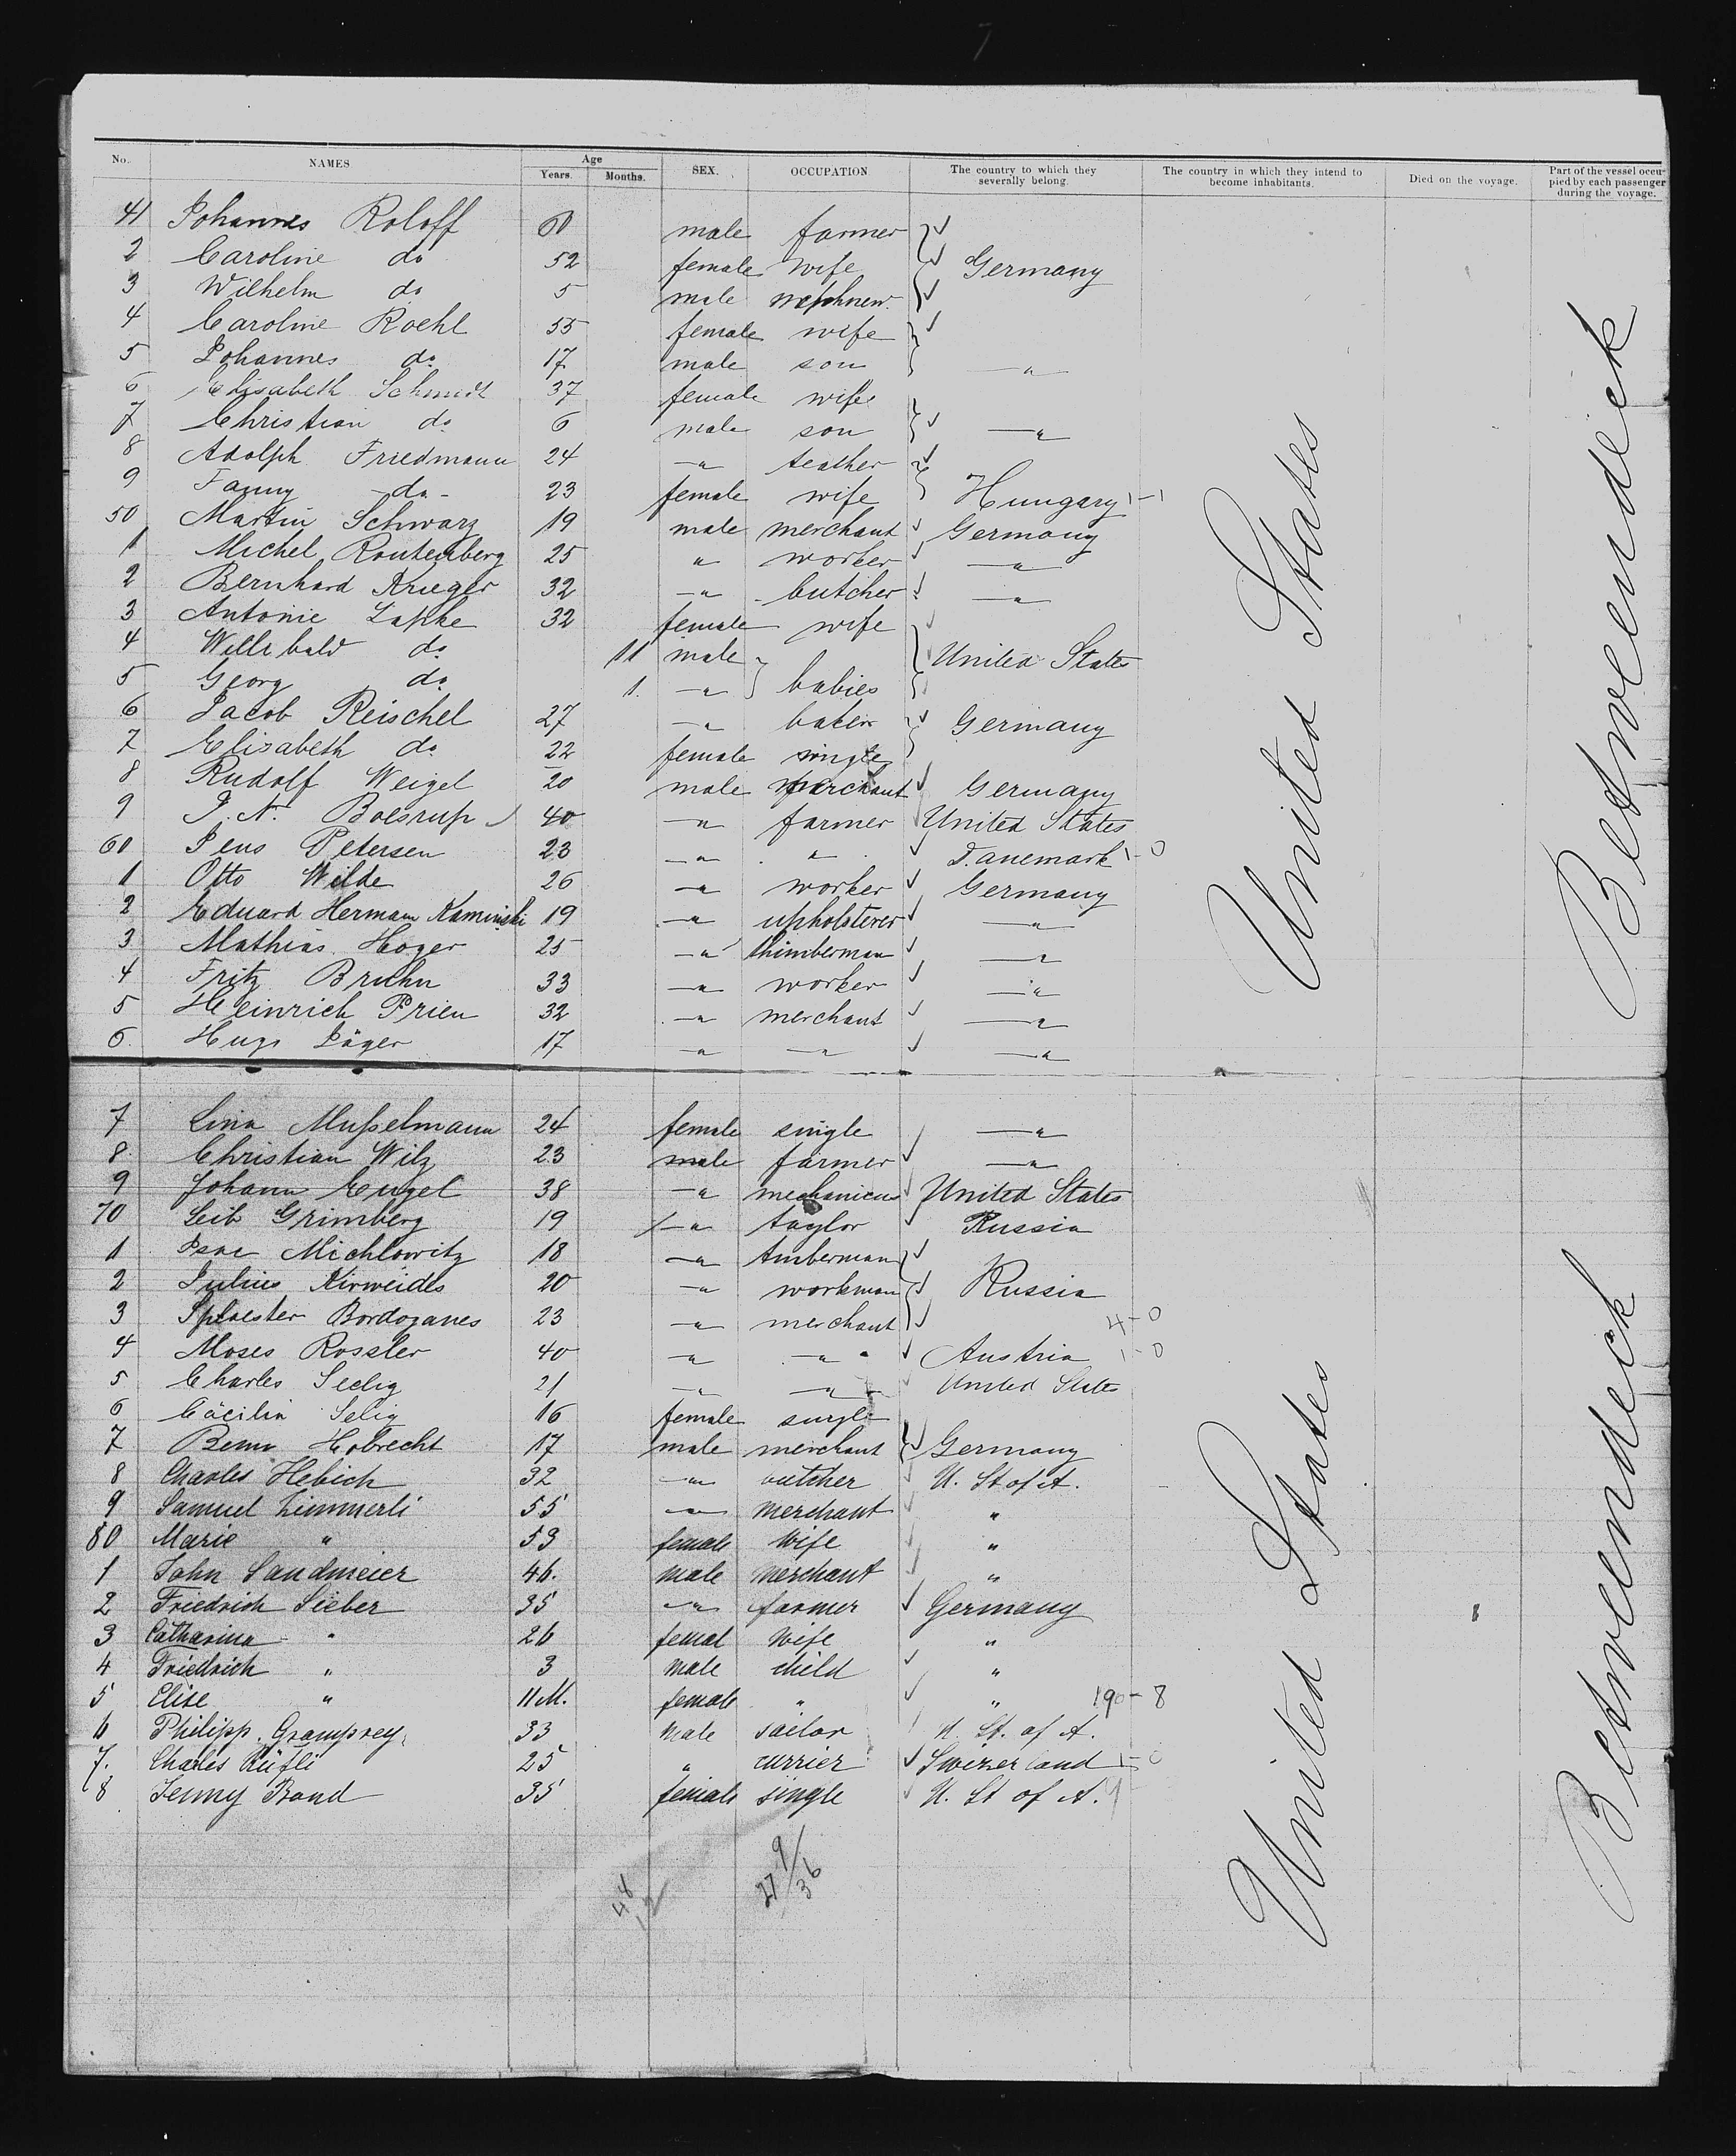 No. NAMES Age Years. Months. SEX. OCCUPATION The country to which they severally belong. The country in which they intend to become inhabitants. Died on the voyage. Part of the vessel occupied by each passenger during the voyage.
41 Johannes Roloff 60 male farmer
2 Caroline do 52 female wife Germany
3 Wilhelm do 5 male nephew
4 Caroline Roehl 55 female wife
5 Johannes do 17 male son —"
6 Elisabeth Schmidt 37 female wife
7 Christian do 6 male son —"
8 Adolph Friedmann 24 —" teather
9 Fanny -do- 23 female wife Hungary 1-1
50 Martin Schwarz 19 male merchant Germany
1 Michel Rautenberg 25 " worker —"
2 Bernhard Krieger 32 —" butcher —"
3 Antonie 32 female wife
4 Willibald do 11 male United States
5 Georg do 1. —" babies
6 Jacob Reischel 27 —" baker Germany
7 Elisabeth do 22 female single
8 Rudolf Weigel 20 male merchant Germany
9 J. N. Boesrup 40 —" farmer United States
60 Jens Petersen 23 —" " Danemark 1-0
1 Otto Wilde 26 —" worker Germany
2 Eduard Hermann Kaminski 19 —" upholsterer —"
3 Mathias Hoger 25 —" thimberman —"
4 Fritz Bruhn 33 —" worker —"
5 Heinrich Prien 32 —" merchant —"
6. Hugo Jäger 17 —" —" —"
7 Lina Mußelmann 24 female single —"
8. Christian Wilz 23 male farmer —"
9 Johann Engel 38 —" mechanicus United States
70 Leib Grimberg 19 —" taylor Russia
1 Isac Michlowitz 18 —" timberman
2 Julius Kirweides 20 —" workman Russia
3 Bordoganes 23 —" merchant 4-0
4 Moses Rossler 40 —" —" Austria 1-0
5 Charles Seelig 21 —" —" United States
6 Cäcilia Selig 16 female single
7 Benno Hobrecht 17 male merchant Germany
8 Charles Hebich 32 —" butcher U. St of A.
9 Samuel Zimmerli 55 —" merchant "
80 Marie " 53 female wife "
1 John Sandmeier 46. male merchant "
2 Friedrich Sieber 35 —" farmer Germany
3 Catharina " 26 femal wife "
4 Friedrich " 3 male child "
5 Elise " 11 M. female " " 190-8
6 Philipp Gramprey 33 male sailor U. St. of A.
7. Charles Rüfli 25 " currier Swizerland 1-0
8 Jenny Band 35 female single U. St of A.
United States
Betweendeck
United States
Betweendeck
48
12
27 9/36